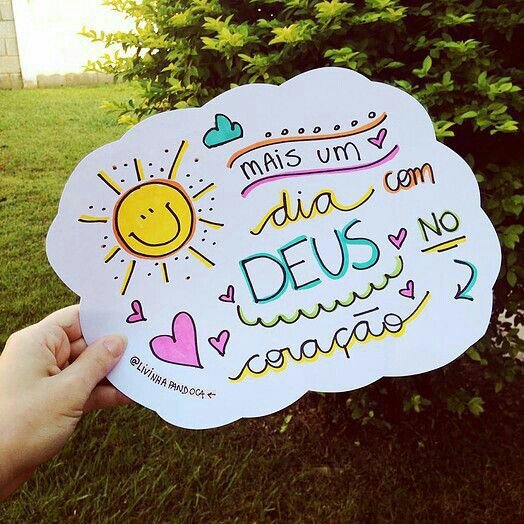 MAIS UM
dia com
DEUS NO
coração
@LIVINHAPANDOCA